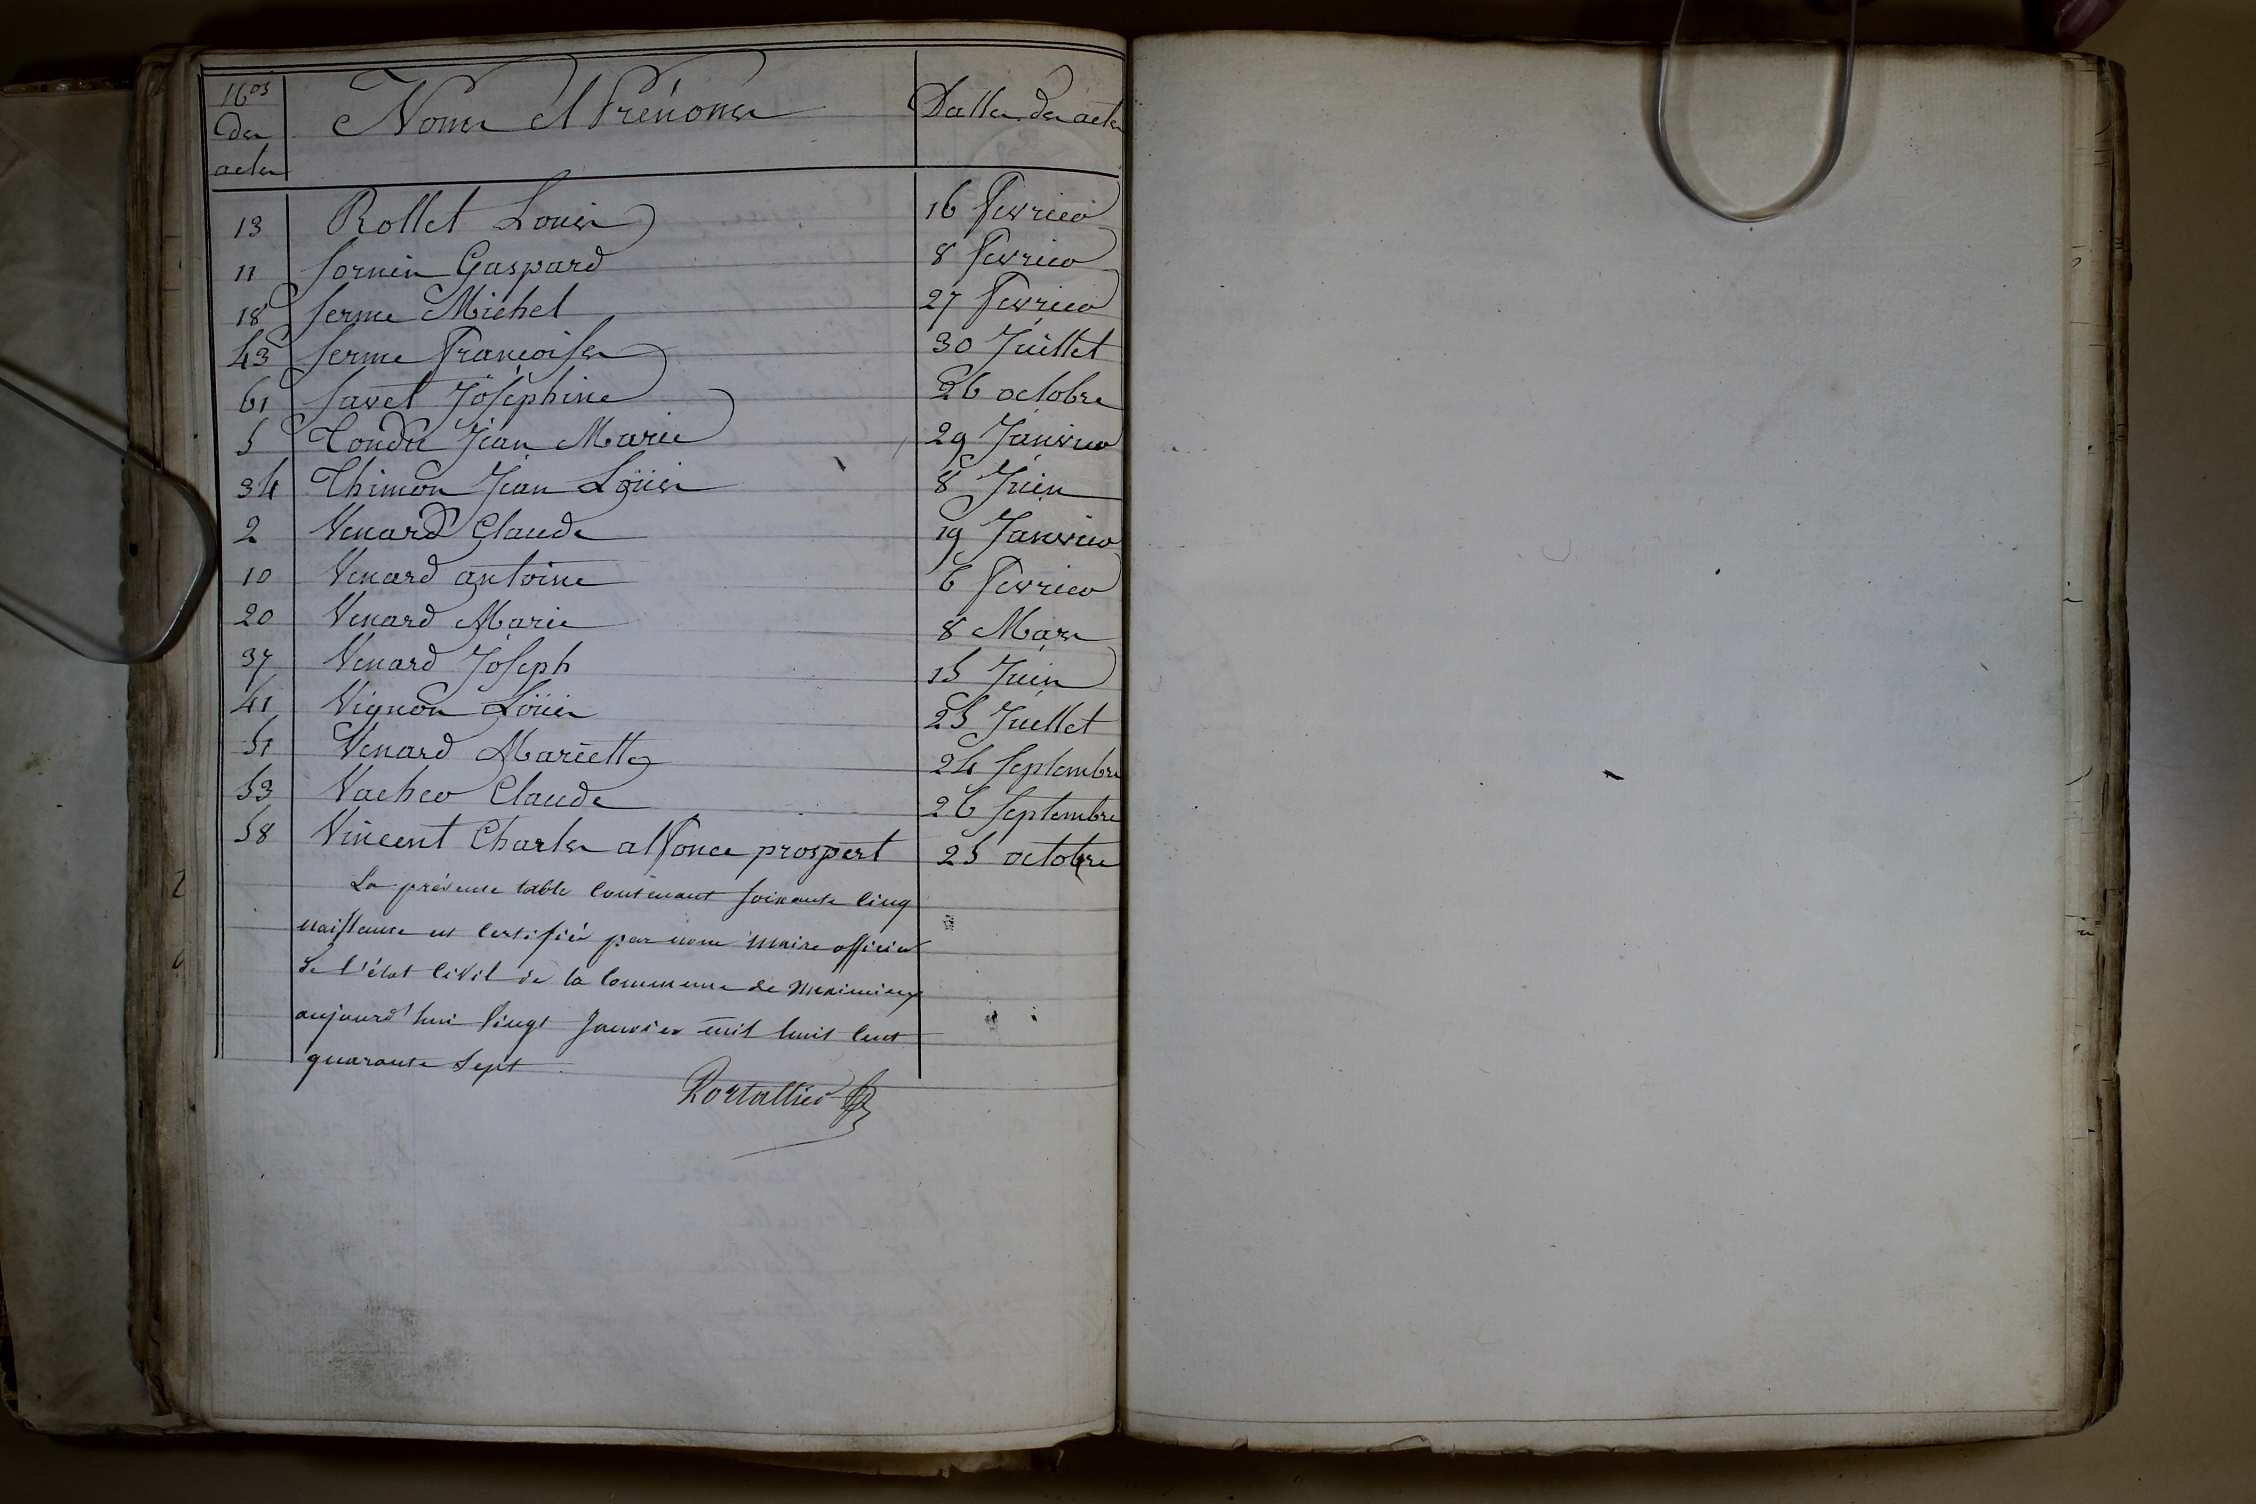 Nos des actes | Noms et Prénoms | Dattes des actes
13 Rollet Louis 16 fevrier
11 Sornin Gaspard 8 fevrier
18 Serme Michel 27 fevrier
43 Serme françoise 30 Juillet
61 Savet Joséphine 26 octobre
5 Tondu Jean Marie 29 Janvier
34 Thimon Jean Loüis 8 Juin
2 Venard Claude 19 Janvier
10 Venard antoine 6 fevrier
20 Venard Marie 8 Mars
37 Venard Joseph 15 Juin
41 Vignon Loüis 25 Juillet
51 Venard Mariette 24 Septembre
53 Vacher Claude 26 Septembre
58 Vincent Charles alfonce prospert 25 octobre
La présente table Contenant soixante Cinq
naissance est Certifiée par nous maire officier
de l'état Civil de la Commune de meximieux
aujourd'hui vingt Janvier mil huit Cent
quarante sept
Portallier